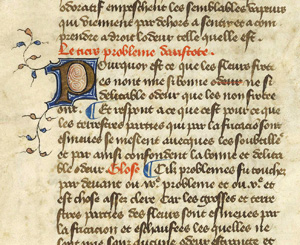 odoratif empeschent les semblables vapeurs
qui viennent par dehors a sentir et a com
prendre a droit lodeur telle quelle est.
Le probleme
Pourquoy est ce que les fleurs frote
es nont mie si bonne odeur ne si
delitable odeur que les non frote
Et respont a ce que cest pour ce que
les terrestres parties qui par la fricacion sont
se meslent avecques les
et par ainsi confondent la bonne et delita
ble odeur Glose Cilz problemes fu touchez
par devant ou probleme et ou
est chose assez clere Car les grosses et terre
stres parties des fleurs sont esmues par
la fricacion et eschaufees les quelles ne
sont mie